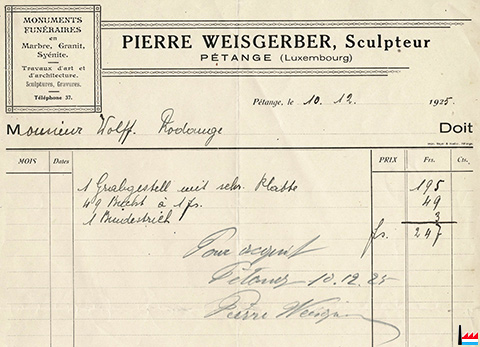 MONUMENTS
FUNÉRAIRES
en
Marbre, Granit,
Syénite.
Travaux d'art et
d'architecture.
Sculptures, Gravures.
Téléphone 37.
PIERRE WEISGERBER, Sculpteur
PÉTANGE (Luxembourg)
Pétange, le 10. 12. 1925.
Monsieur Wolff. Rodange Doit
MOIS Dates PRIX Frs. Cts.
1 Grabgestell mit schw. Platte 195
49 Buchst à 1 fs. 49
1 Bindestrich 3
fs. 247
Pour acquit
Pétange 10.12.25
Pierre